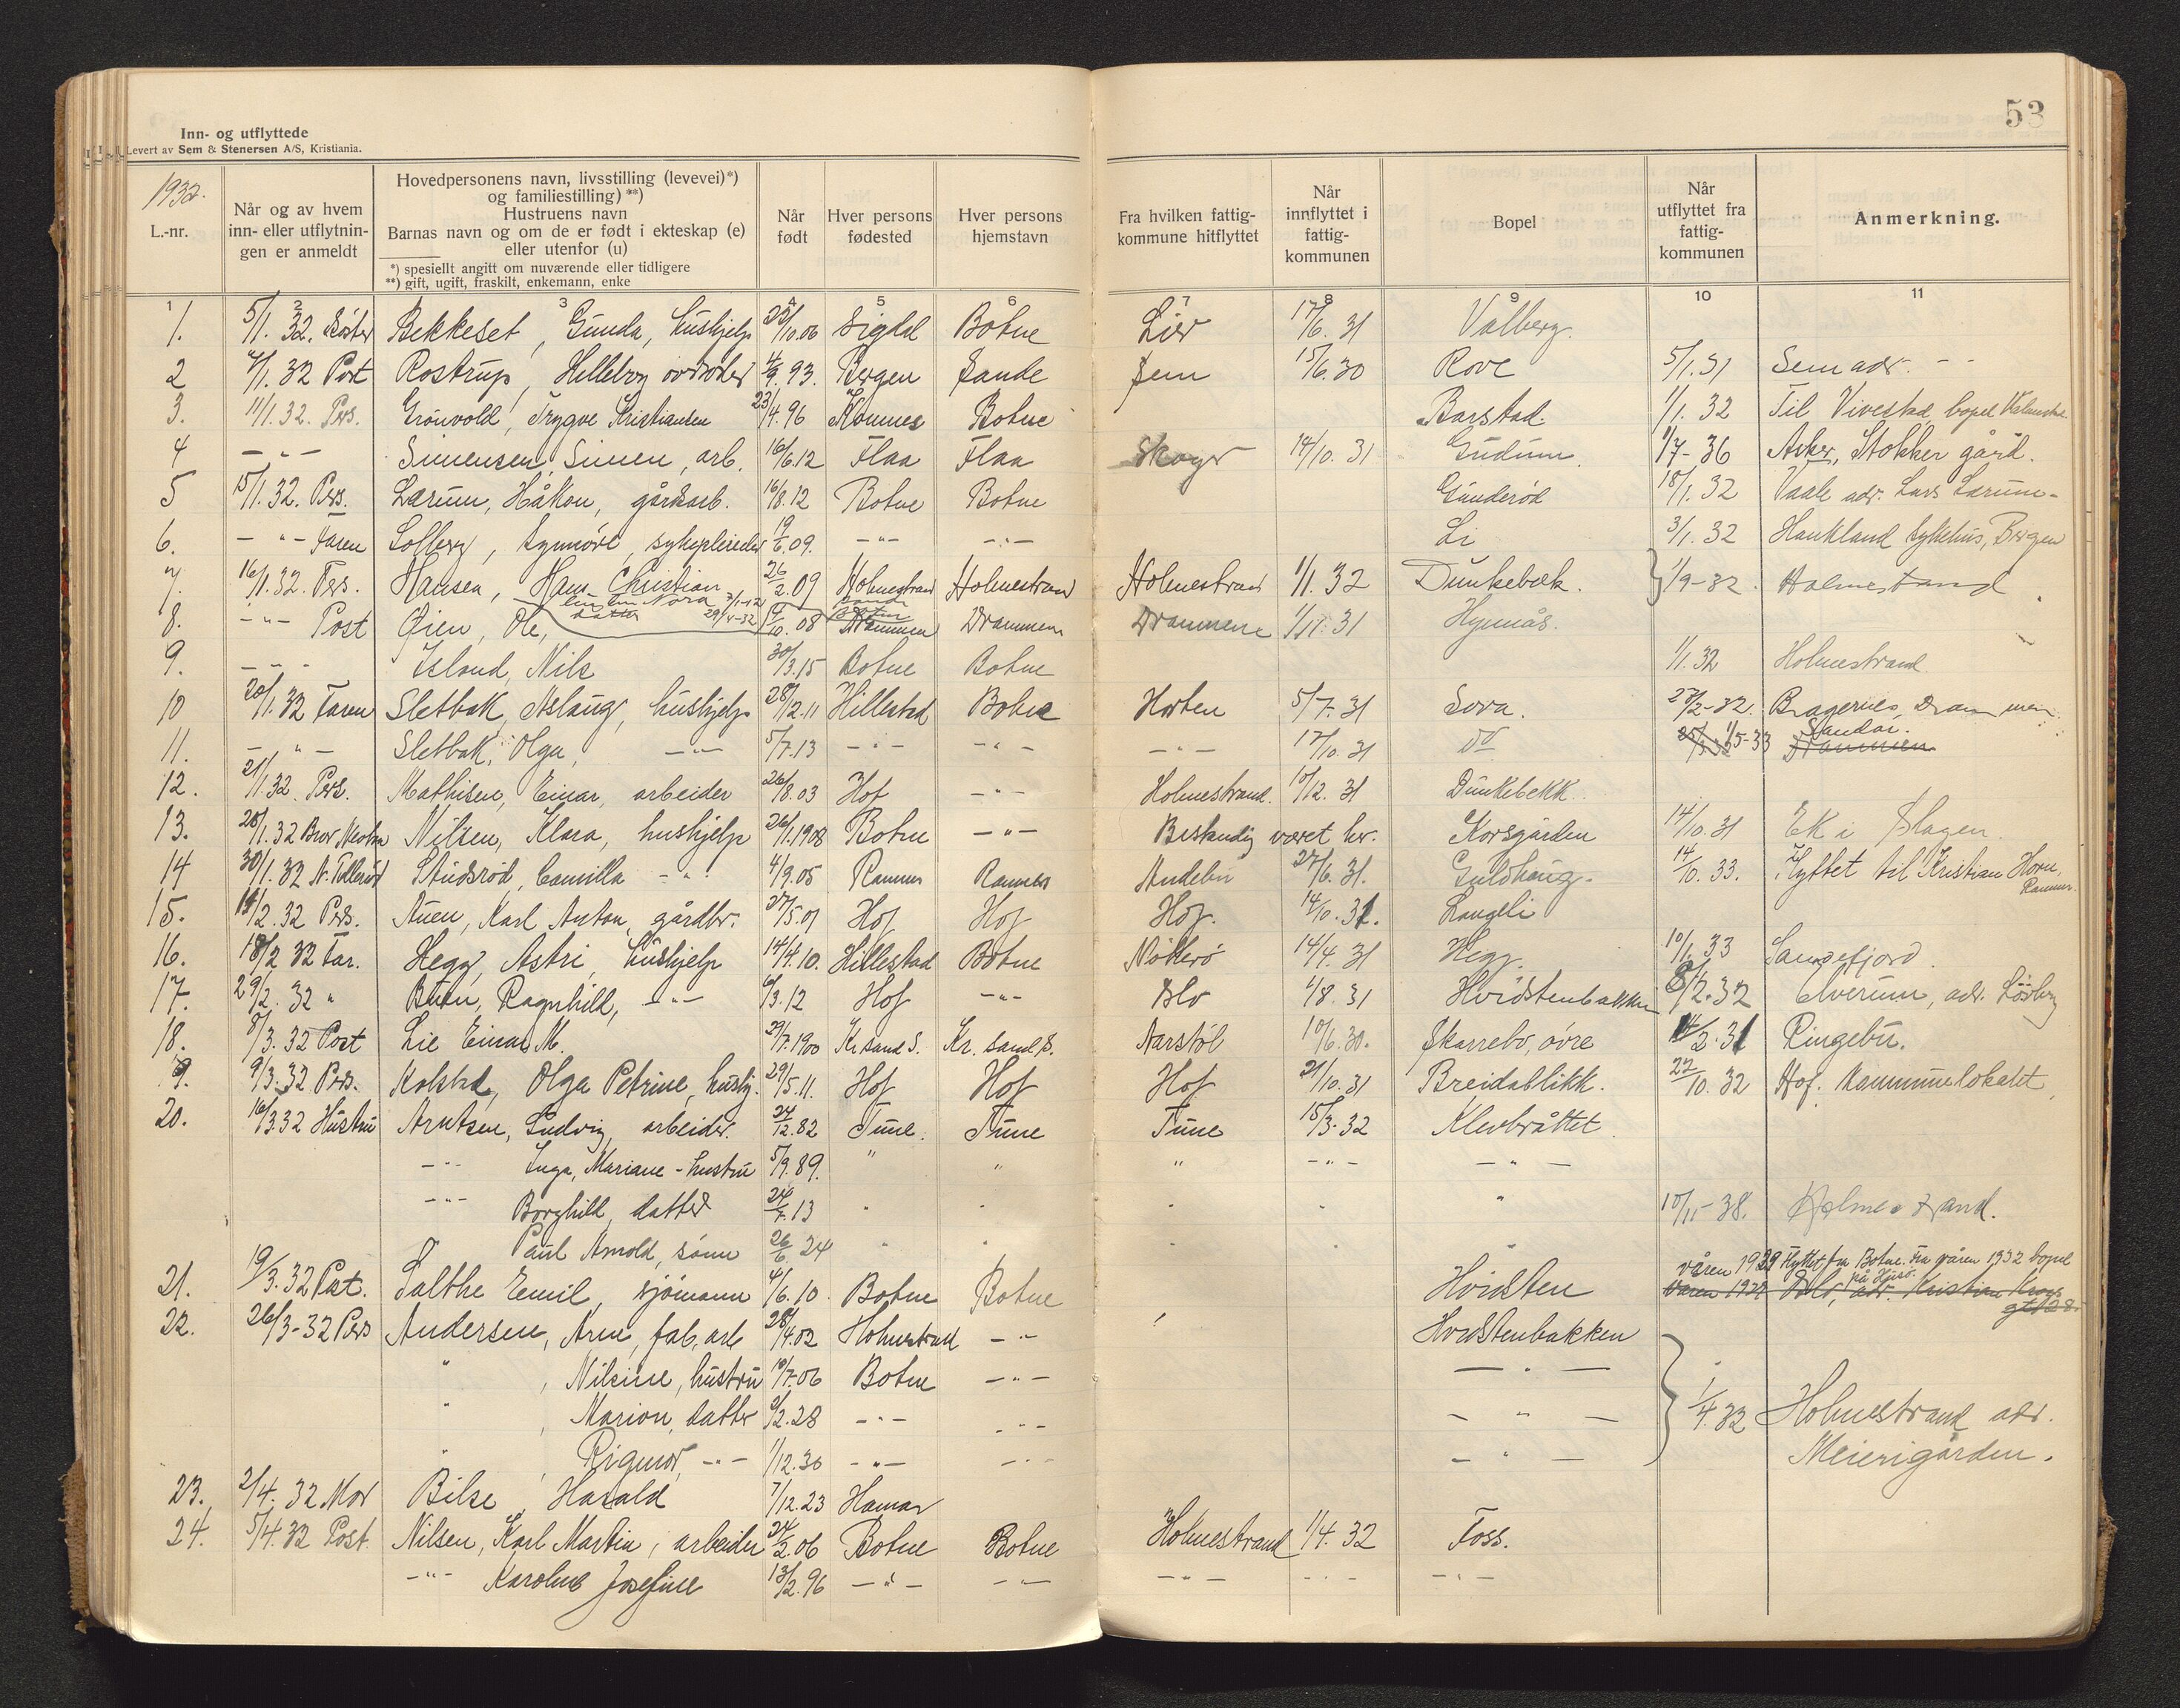 53
Inn- og utflyttede
Levert av Sem & Stenersen A/S, Kristiania.
1932.
L.-nr.
Når og av hvem
inn- eller utflytnin-
gen er anmeldt
Hovedpersonens navn, livsstilling (levevei)*)
og familiestilling) **)
Hustruens navn
Barnas navn og om de er født i ekteskap (e)
eller utenfor (u)
*) spesiellt angitt om nuværende eller tidligere
**) gift, ugift, fraskilt, enkemann, enke
Når
født
Hver persons
fødested
Hver persons
hjemstavn
Fra hvilken fattig-
kommune hitflyttet
Når
innflyttet i
fattig-
kommunen
Bopel
Når
utflyttet fra
fattig-
kommunen
Anmerkning.
1 2 3 4 5 6 7 8 9 10 11
1. 5/1. 32. Bekkeset, Gunda, hushjelp 23/10.06 Sigdal Botne Lier 17/6. 31 Vålberg.
2 7/1. 32 Post Rostrup, Helleborg 4/9. 93. Bergen Sande Sem 15/6.30 Rove 5/1.31 Sem adr. - -
3. 11/1. 32. Pers. Grönvold, Trygve Kristiansen 23/4.96 Botne Barstad 1/1. 32 Til Vivestad, bopel
4 - " - Simensen, Simen, arb. 16/6.12 Flaa Flaa Skoger 14/10. 31 Gudum. 1/7- 36 Asker, Stokker gård.
5 15/1. 32. Pers. Lærum, Håkon, gårdsarb. 16/8.12 Botne Botne Gunderød 18/1. 32 Vaale adr. Lars Lærum-
6. - " - Faren Solberg, Synnöve, 19/6.09. - " - - " - Li 3/1. 32 Haukland sykehus, Bergen
7. 16/1.32. Pers. Hansen, Hans Christian 26/2.09 Holmestrand Holmestrand Holmestrand 1/1. 32 Dunkebæk. 1/9-32. Holmestrand
Nora
datter 29/4-32
8. - " - Post Øien, Ole, 14/10. 08 Drammen Drammen Drammen 1/11. 31 Hynnås.
9. - " - Island, Nils 30/3.15 Botne Botne 1/1. 32 Holmestrand
10 20/1. 32 Faren Sletbak, Aslaug, hushjelp 28/2.11 Hillestad Botne Horten 5/7. 31 Sova. 27/2-32. Bragernes, Drammen.
11. - " - Sletbak, Olga, - " - 5/7.13 - " - - " - - " - 17/10. 31 1/5-33 Sandar. Drammen
12. 21/1. 32. Pers. Mathisen, Einar, arbeider 26/8.03 Hof - " - Holmestrand. 10/12. 31 Dunkebekk.
13. 26/1. 32 Nilsen, Klara, hushjelp 26/1.1908 Botne - " - Bestandig været her. Korsgården 14/10. 31 Ek i Slagen
14 30/1. 32 Studsröd, Camilla - " - 4/9.05 Ramnes Ramnes Andebu 27/6. 31. Guldhaug. 14/10. 33. Flyttet til Kristian Horn,
Ramnes.
15. 19/2. 32 Pers. Auen, Karl Anton, gårdbr. 27/5.01 Hof Hof Hof. 14/10. 31. Langeli
16. 18/2 32 Far. Hegg, Astri, hushjelp 14/4.10. Hillestad Botne Nötterö 14/4. 31 Hegg. 10/1. 33 Sandefjord.
17. 29/2. 32 " Ragnhild, - " - 6/3.12 Hof - " - Oslo 1/8. 31 Hvidstenbakken 8/2.32 Elverum, adr.
18. 8/3. 32 Post Lie Einar M. 29/7.1900 Kr.sand S. Kr. sand, S. 10/6. 30. Skarrebo, övre 14/2.31 Ringebu.
9. 9/3. 32 Pers. Kolstad, Olga Petrine, hushj. 29/5.11. Hof Hof Hof 21/10. 31 Breidablikk. 22/10. 32 Hof. Kommunelokalet
20. 16/3.32 Hustru Arntsen, Ludvig, arbeider. 24/12.82 Tune. Tune Tune 15/3. 32 Klevbråttet
- " - Inga, Mariane - hustru 5/9.89. " " " - " - - " -
- " - Borghild, datter 24/7.13 " " " " " 10/11-38. Holmestrand.
Paul Arnold, sönn 26/6 24 " " " "
21. 19/3. 32 Post. Salthe Emil, sjömann 4/6. 10. Botne Botne Hvidsten våren 1929 Flyttet fra Botne. bopel
på Hvist.
våren 1929 Oslo, adr. Kristian Krogs
gt. 28
22. 26/3-32 Pers Andersen, Arne, fab. arb 28/4.02 Holmestrand - " - Hvidstenbakken
" , Nilsine, hustru 10/7.06 Botne - " - - " -
" , Marion, datter 9/2.28 - " - - " - - " - 1/4.32 Holmestrand adr.
" , Rigmor, - " - 1/12.30 - " - - " - - " - Meierigården.
23. 2/4. 32 Mor Bilse, Harald 7/12.23 Hamar
24. 5/4.32 Post. Nilsen, Karl Martin, arbeider 24/2.06 Botne Botne Holmestrand 1/4. 32 Foss.
- " - Karoline Josefine 13/2.96 - " - - " - - " - - " - - " -